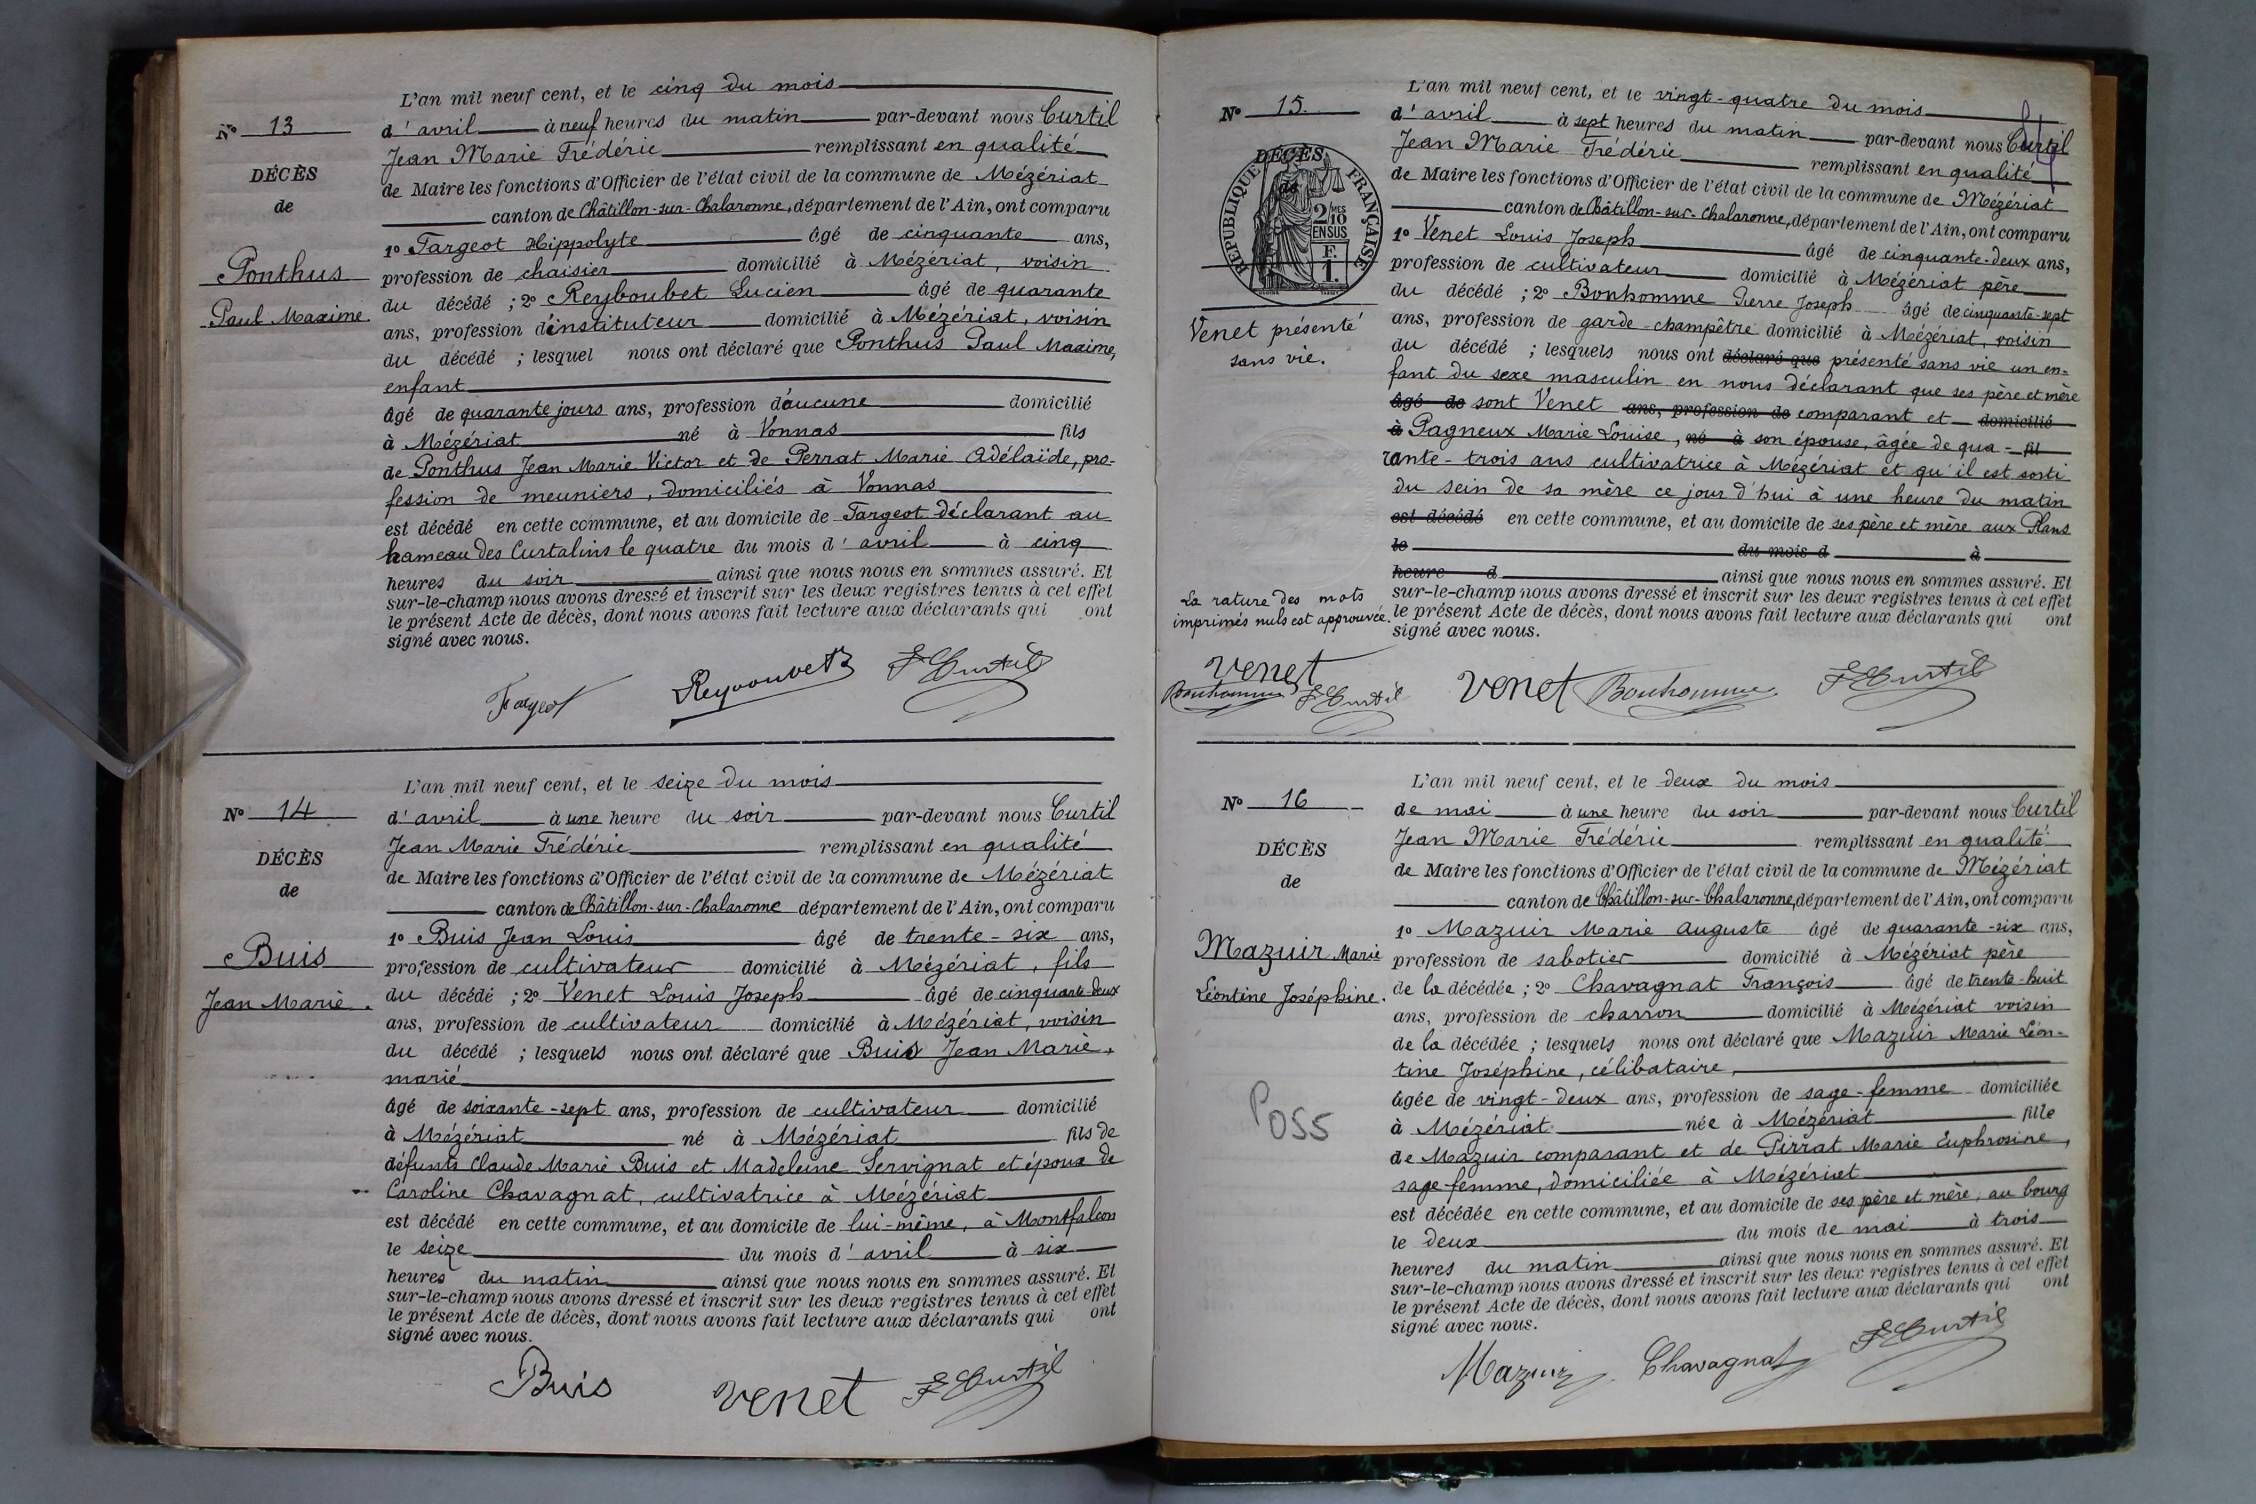 L'an mil neuf cent, et le cinq du mois
N° 13
d'avril à neuf heures du matin par-devant nous Curtil
Jean Marie Frédéric remplissant en qualité
DÉCÈS
de Maire les fonctions d'Officier de l'état civil de la commune de Mézériat
de
canton de Châtillon-sur-Chalaronne, département de l'Ain, ont comparu
1° Fargeot Hippolyte âgé de cinquante ans,
Ponthus
profession de chaisier domicilié à Mézériat, voisin
Paul Maxime.
du décédé ; 2° Reyboubet Lucien âgé de quarante
ans, profession d'instituteur domicilié à Mézériat, voisin
du décédé ; lesquel nous ont déclaré que Ponthus Paul Maxime,
enfant
âgé de quarante jours ans, profession d'aucune domicilié
à Mézériat né à Vonnas fils
de Ponthus Jean Marie Victor et de Perrat Marie Adélaïde, pro-
fession de meuniers, domiciliés à Vonnas
est décédé en cette commune, et au domicile de Fargeot déclarant au
hameau des Curtalins le quatre du mois d'avril à cinq
heures du soir ainsi que nous nous en sommes assuré. Et
sur-le-champ nous avons dressé et inscrit sur les deux registres tenus à cet effet
le présent Acte de décès, dont nous avons fait lecture aux déclarants qui ont
signé avec nous.
Fargeot Reyvouvet F Curtil
L'an mil neuf cent, et le seize du mois
N° 14
d'avril à une heure du soir par-devant nous Curtil
Jean Marie Frédéric remplissant en qualité
DÉCÈS
de Maire les fonctions d'Officier de l'état civil de la commune de Mézériat
de
canton de Châtillon-sur-Chalaronne département de l'Ain, ont comparu
1° Buis Jean Louis âgé de trente-six ans,
Buis
profession de cultivateur domicilié à Mézériat, fils
Jean Marie.
du décédé ; 2° Venet Louis Joseph âgé de cinquante-deux
ans, profession de cultivateur domicilié à Mézériat, voisin
du décédé ; lesquels nous ont déclaré que Buis Jean Marie,
marié
âgé de soixante-sept ans, profession de cultivateur domicilié
à Mézériat né à Mézériat fils de
défunts Claude Marie Buis et Madeleine Servignat et époux de
Caroline Chavagnat, cultivatrice à Mézériat
est décédé en cette commune, et au domicile de lui-même, à Montfalcon
le seize du mois d'avril à six
heures du matin ainsi que nous nous en sommes assuré. Et
sur-le-champ nous avons dressé et inscrit sur les deux registres tenus à cet effet
le présent Acte de décès, dont nous avons fait lecture aux déclarants qui ont
signé avec nous.
Buis venet F Curtil
L'an mil neuf cent, et le vingt-quatre du mois
N° 15.
d'avril à sept heures du matin par-devant nous Curtil
Jean Marie Frédéric remplissant en qualité
DÉCÈS
de
RÉPUBLIQUE FRANÇAISE
2/10 MES
EN SUS
F.
1.
de Maire les fonctions d'Officier de l'état civil de la commune de Mézériat
canton de Châtillon-sur-Chalaronne, département de l'Ain, ont comparu
1° Venet Louis Joseph âgé de cinquante-deux ans,
profession de cultivateur domicilié à Mézériat père
du décédé ; 2° Bonhomme Pierre Joseph âgé de cinquante-sept
Venet présenté
sans vie.
ans, profession de garde-champêtre domicilié à Mézériat, voisin
du décédé ; lesquels nous ont déclaré que présenté sans vie un en-
fant du sexe masculin en nous déclarant que ses père et mère
âgé de sont Venet ans, profession de comparant et domicilié
à Pagneux Marie Louise, né à son épouse, âgée de qua- fil
rante-trois ans cultivatrice à Mézériat et qu'il est sorti
du sein de sa mère ce jour d'hui à une heure du matin
est décédé en cette commune, et au domicile de ses père et mère aux Plans
le du mois d à
heure d ainsi que nous nous en sommes assuré. Et
sur-le-champ nous avons dressé et inscrit sur les deux registres tenus à cet effet
le présent Acte de décès, dont nous avons fait lecture aux déclarants qui ont
signé avec nous.
La rature des mots
imprimés nuls est approuvée.
venet
Bonhomme F Curtil
venet Bonhomme F Curtil
L'an mil neuf cent, et le deux du mois
N° 16
de mai à une heure du soir par-devant nous Curtil
Jean Marie Frédéric remplissant en qualité
DÉCÈS
de Maire les fonctions d'Officier de l'état civil de la commune de Mézériat
de
canton de Châtillon-sur-Chalaronne, département de l'Ain, ont comparu
1° Mazuir Marie Auguste âgé de quarante-six ans,
Mazuir Marie
profession de sabotier domicilié à Mézériat père
Léontine Joséphine.
de la décédée ; 2° Chavagnat François âgé de trente-huit
ans, profession de charron domicilié à Mézériat voisin
de la décédée ; lesquels nous ont déclaré que Mazuir Marie Léon-
tine Joséphine, célibataire,
âgée de vingt-deux ans, profession de sage-femme domiciliée
Poss
à Mézériat née à Mézériat fille
de Mazuir comparant et de Pirrat Marie Euphrosine,
sage-femme, domiciliée à Mézériat
est décédée en cette commune, et au domicile de ses père et mère, au bourg
le deux du mois de mai à trois
heures du matin ainsi que nous nous en sommes assuré. Et
sur-le-champ nous avons dressé et inscrit sur les deux registres tenus à cet effet
le présent Acte de décès, dont nous avons fait lecture aux déclarants qui ont
signé avec nous.
Mazuir Chavagnat F Curtil